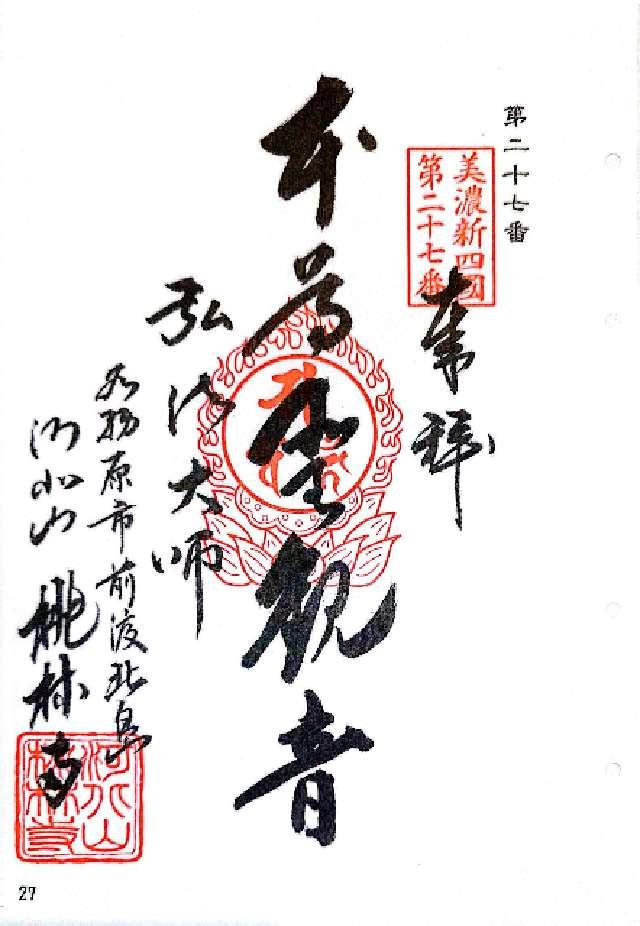 第二十七番
美濃新四國
第二十七番
奉拝
本尊聖観音
弘法大師
各務原市前渡北島
河北山 桃林寺
河北山
桃林寺
27